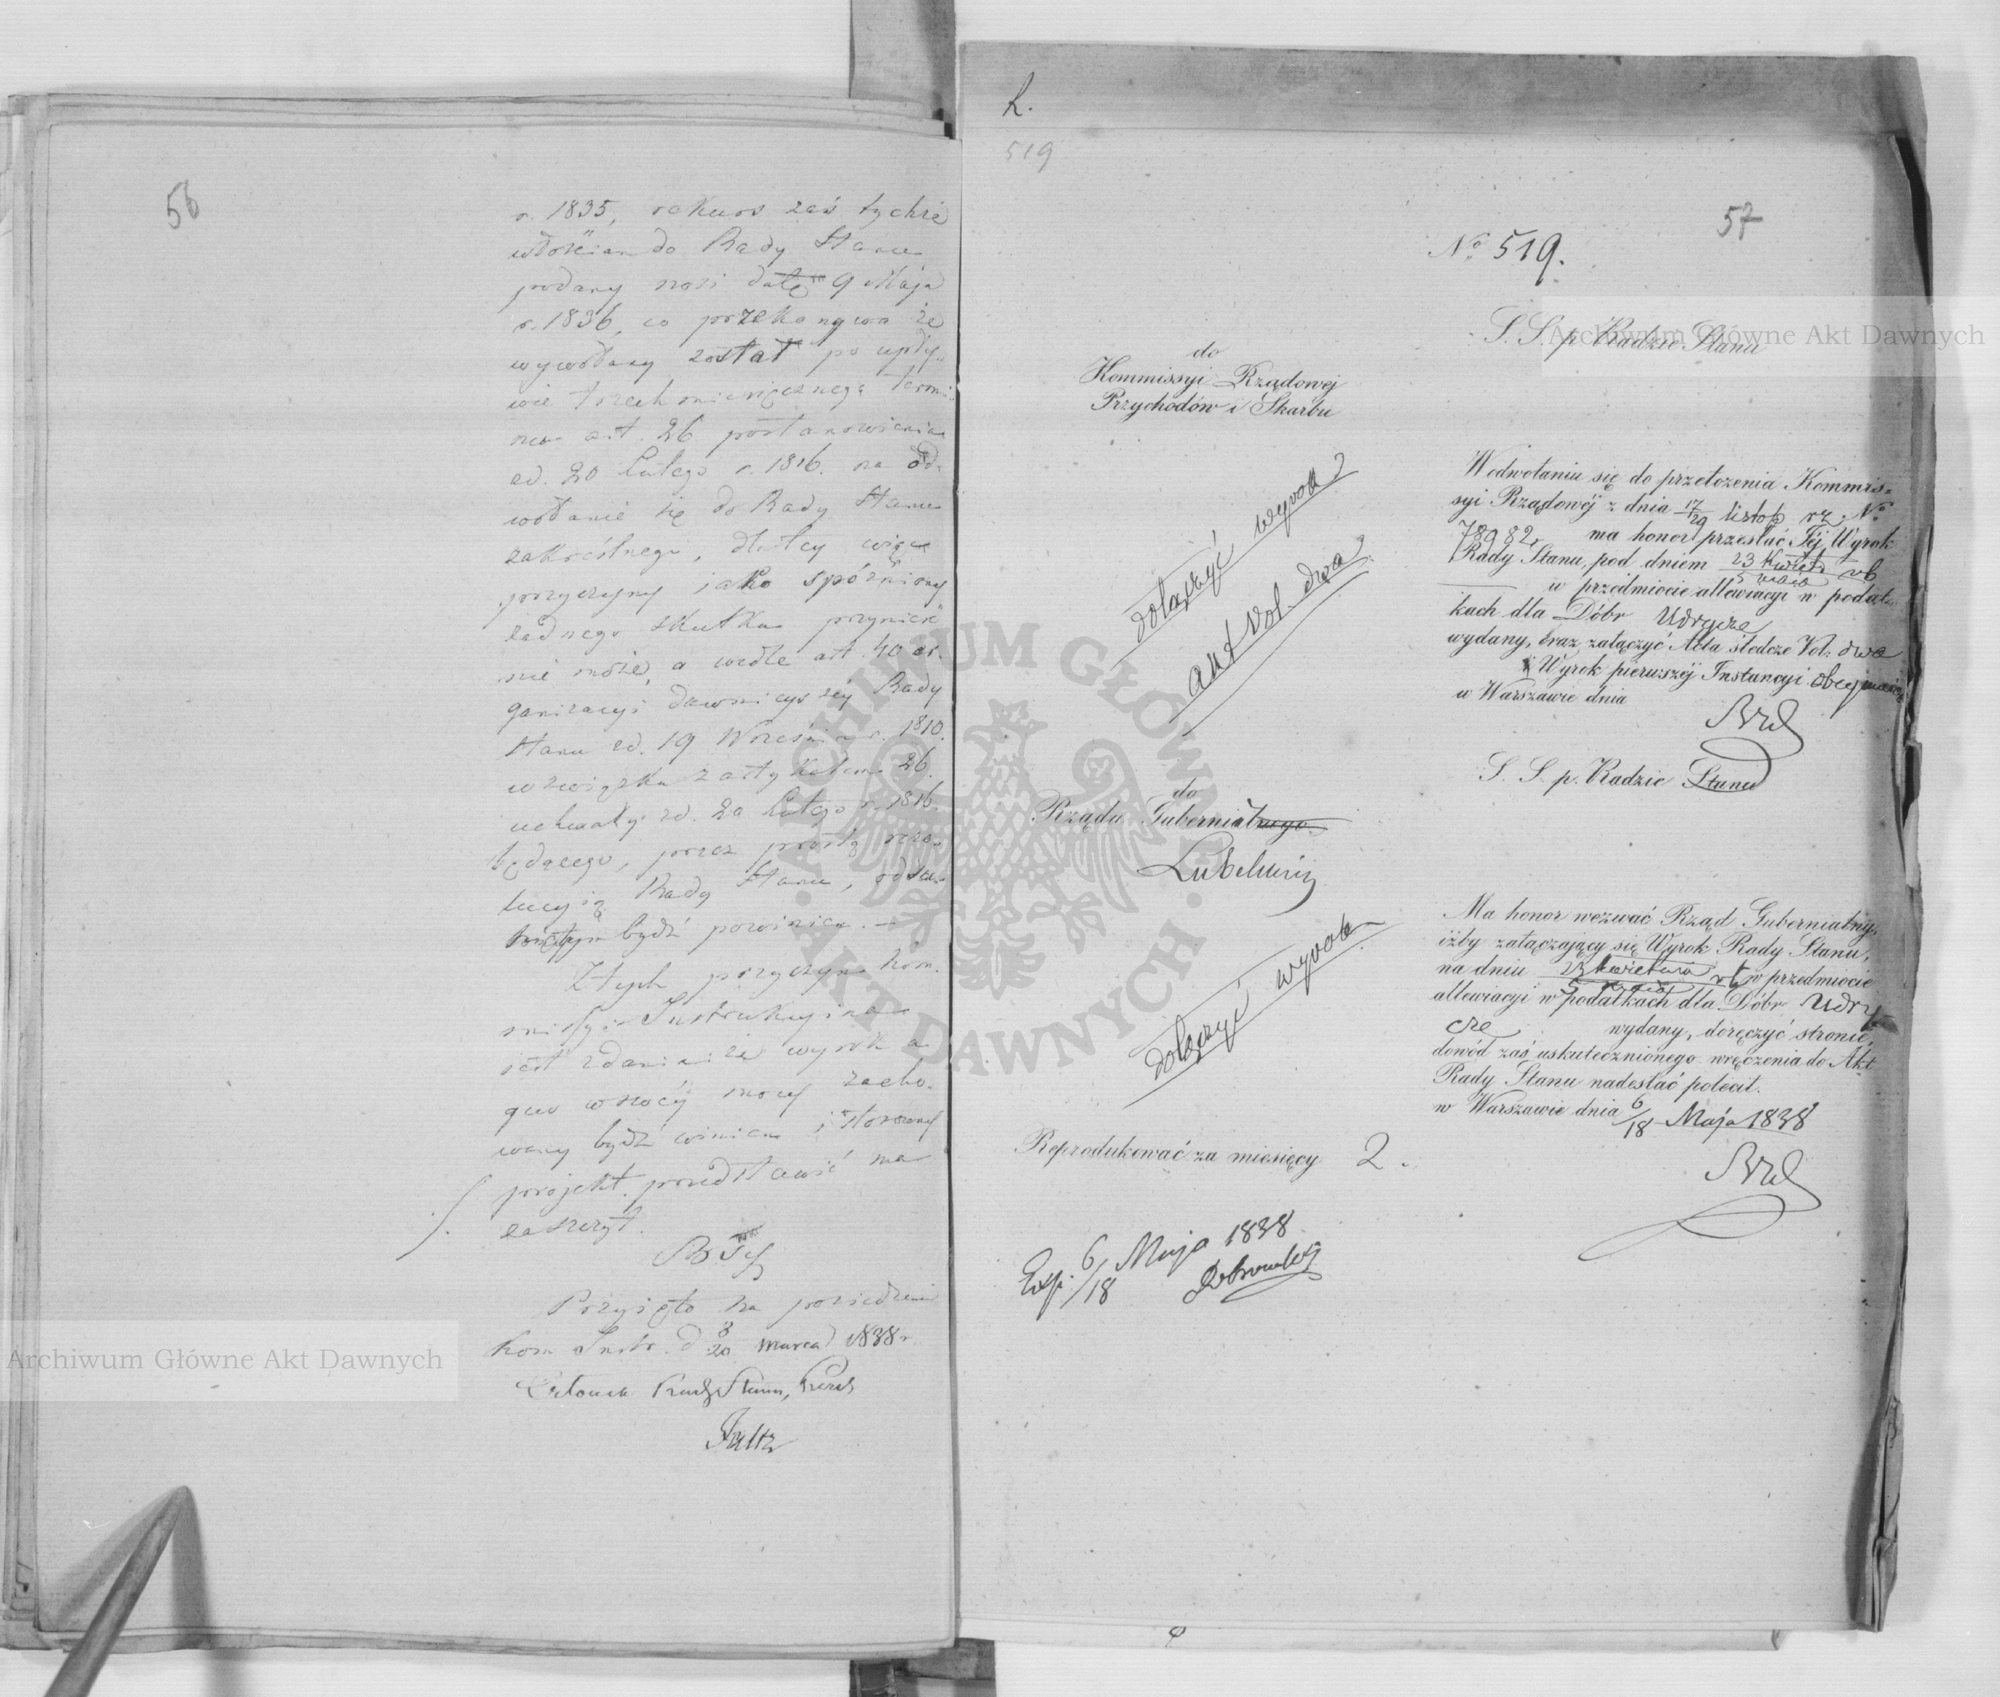 56
r. 1835, rekurs zaś tychże
włościan do Rady Stanu
podany nosi datę 9 Maja
r. 1836, co przekonywa że
wywołany został po upły-
wie trzechmiesięcznego termi-
nu art. 26 postanowienia
z d. 20 Lutego r. 1816. na od-
wołanie się do Rady Stanu
zakreślnego, dla tey więc
przyczyny jako spóźniony
żadnego skutku przynieść
nie może, a wedle art. 40 or-
ganizacyi dawniejszéy Rady
Stanu z d. 19 Września r. 1810.
w związku z artykułem 26.
uchwały z d. 20 Lutego r. 1816.
będącego, przez prostą rezo-
lucyią Rady Stanu,
bydź powinien. —
Z tych przyczyn Kom-
missyia Instrukcyina
jest zdania że wyrok a
quo w swocy mocy zacho-
wany bydź winien i stosowny
projekt przedstawić ma
zaszczyt.
Przyięto na posiedzeniu
Kom Instr. d 8/20 marca 1838 r
Członek Rady Stanu, Prezes
k.
519
57
No 519.
S. S. p. Radzie Stanu
do
Kommissyi Rządowej
Przychodów i Skarbu
dołączyć wyrok
akt Vol. dwa
W odwołaniu się do przełożenia Kommis-
syi Rządowéj z dnia 17/29 listop. rz. No
78982, ma honor przesłać Jéj Wyrok
Rady Stanu, pod dniem 23 kwiet rb
w przedmiocie allewiacyi w podat-
kach dla Dóbr Udrycze
wydany, oraz załączyć Akta śledcze Vol: dwa
i Wyrok pierwszéj Instancyi obejmujące
w Warszawie dnia
S. S. p. Radzie Stanu
do
Rządu Gubernialnego
Lubelskiego
dołączyć wyrok
Ma honor wezwać Rząd Gubernialny,
iżby załączający się Wyrok Rady Stanu,
na dniu 23 kwietnia rb w przedmiocie
allewiacyi w podatkach dla Dóbr Udry
cze wydany, doręczyć stronie,
dowód zaś uskutecznionego wręczenia do Akt
Rady Stanu nadesłać polecił.
w Warszawie dnia 6/18 Maja 1838
Reprodukować za miesięcy 2.
Exp. 6/18 Maja 1838
Archiwum Główne Akt Dawnych
Archiwum Główne Akt Dawnych
ARCHIWUM GŁÓWNE
AKT DAWNYCH